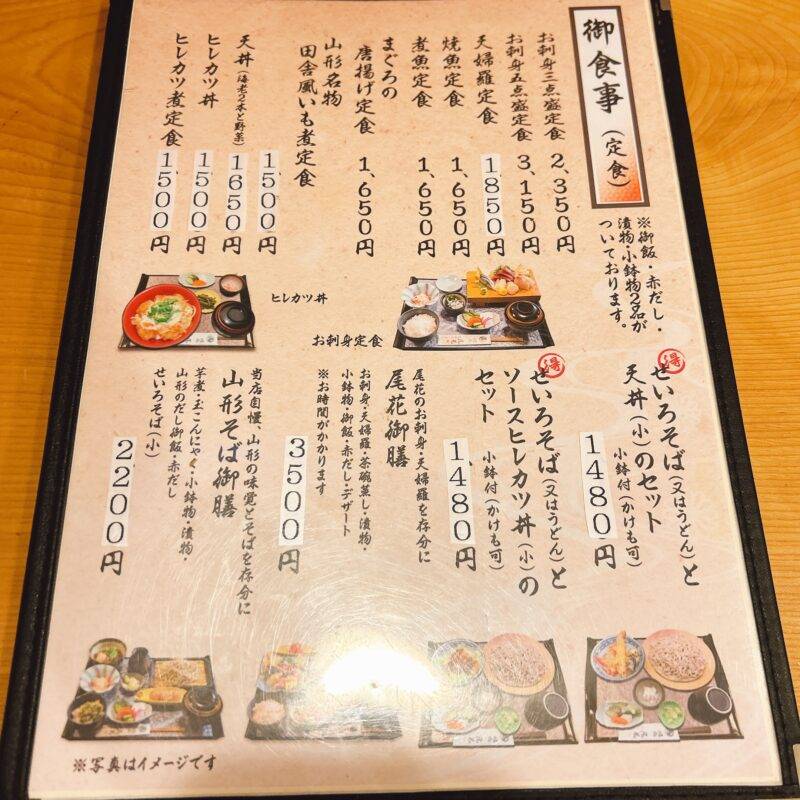 御食事(定食)
※御飯・赤だし・
漬物・小鉢物2品が
ついております。
お刺身三点盛定食 2,350円
お刺身五点盛定食 3,150円
天婦羅定食 1850円
焼魚定食 1,650円
煮魚定食 1,650円
まぐろの
唐揚げ定食 1,650円
山形名物
田舎風いも煮定食 1500円
天丼(海老2本と野菜) 1650円
ヒレカツ丼 1500円
ヒレカツ煮定食 1500円
ヒレカツ丼
お刺身定食
湯
せいろそば(又はうどん)と
天丼(小)のセット
小鉢付(かけも可)
1480円
湯
せいろそば(又はうどん)と
ソースヒレカツ丼(小)の
セット 小鉢付(かけも可)
1480円
尾花のお刺身・天婦羅を存分に
尾花御膳
お刺身・天婦羅・茶碗蒸し・漬物・
小鉢物・御飯・赤だし・デザート
※お時間がかかります
3500円
当店自慢、山形の味覚とそばを存分に
山形そば御膳
芋煮・玉こんにゃく・小鉢物・漬物・
山形のだし御飯・赤だし
せいろそば(小)
2200円
※写真はイメージです